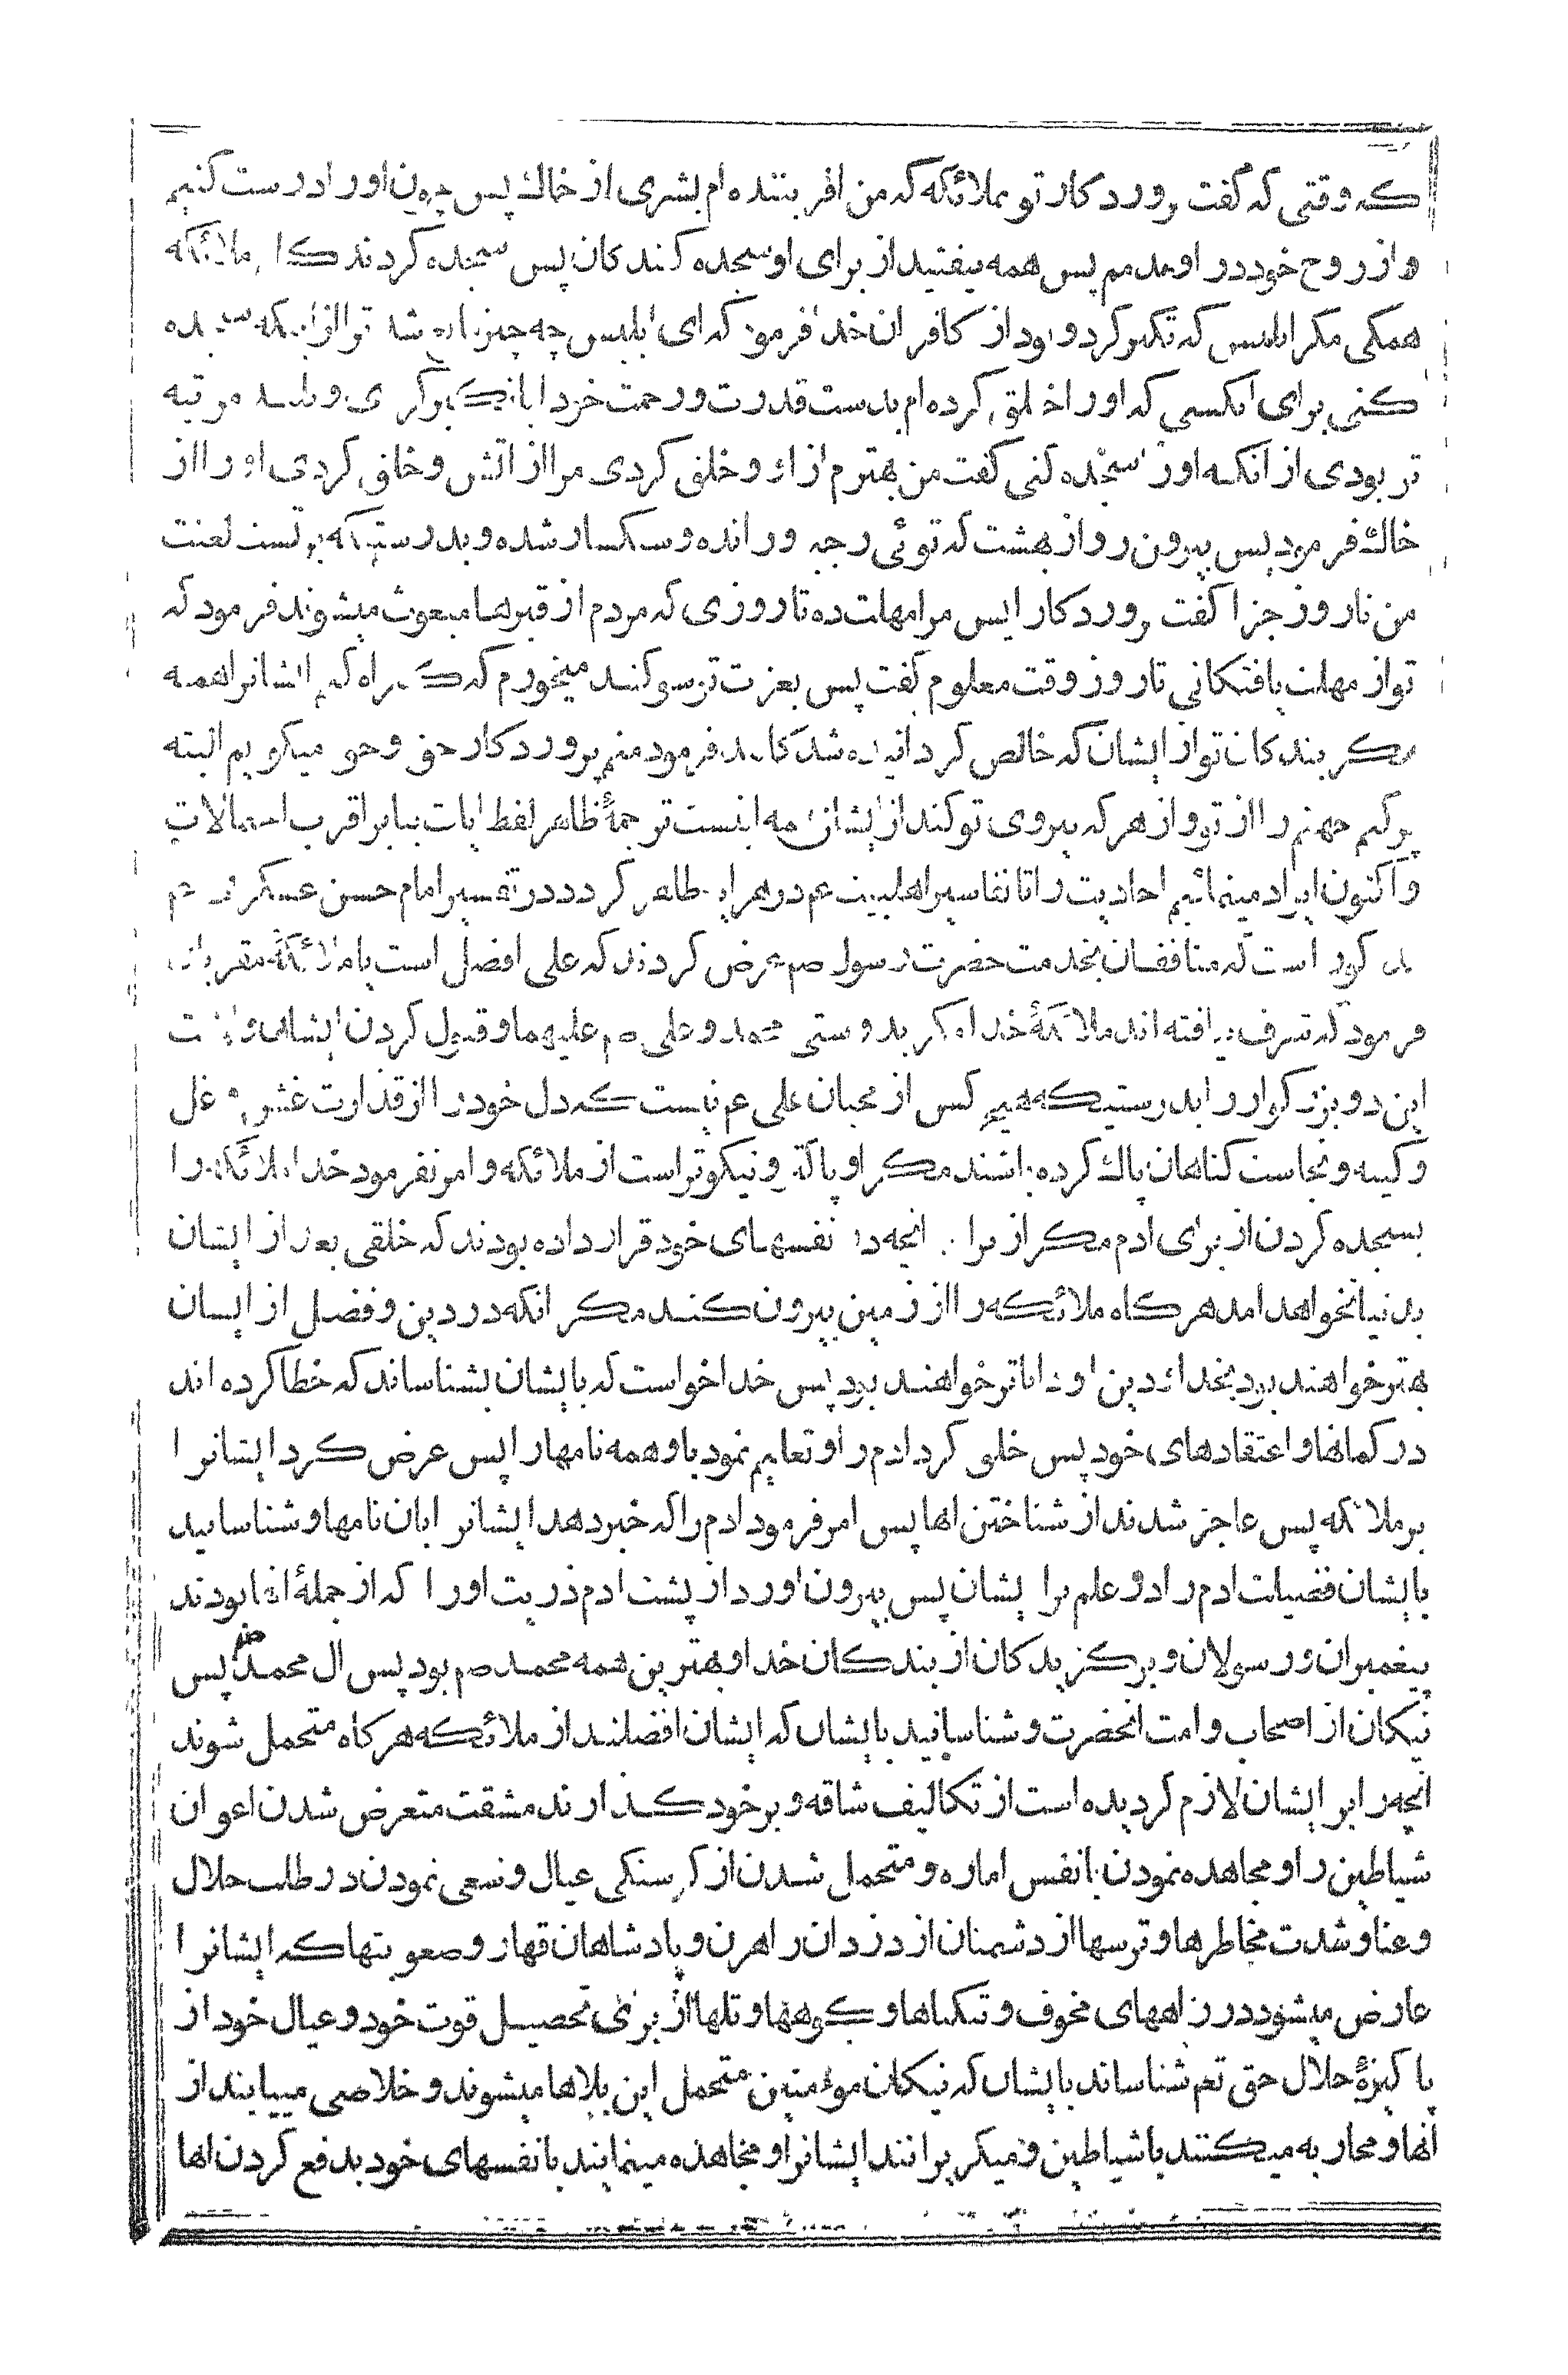 که وقتی که گفت پروردکار تو بملائکه که من افریننده ام بشری از خاک پس چون اورا درست کنیم
و از روح خود در او بدمم پس همه بیفتید از برای او سجده کنندکان پس سجده کردند ملائکه
همکی مکر ابلیس که تکبر کرد و بود از کافران خدا فرمود که ای ابلیس چه چیز مانع شد ترا از اینکه سجده
کنی برای انکسی که اورا خلق کرده ام بدست قدرت و رحمت خود ایا تکبر کردی و بلند مرتبه
تر بودی از آنکه اورا سجده کنی گفت من بهترم از او خلق کردی مرا از اتش و خلق کردی اورا از
خاک فرمود پس بیرون رو از بهشت که توئی رجیم و رانده و سنکسار شده و بدرستیکه بر تست لعنت
من تا روز جزا گفت پروردکارا پس مرا مهلت ده تا روزی که مردم از قبرها مبعوث میشوند فرمود که
تو از مهلت یافتکانی تا روز وقت معلوم گفت پس بعزت تو سوکند میخورم که کمراه کنم ایشانرا همه
مکر بندکان تو از ایشان که خالص کردانیده شده اند فرمود منم پروردکار حق و حق میکویم البته
پر کنم جهنم را از تو و از هر که پیروی تو کند از ایشان همه اینست ترجمهٔ ظاهر لفظ ایات بنابر اقرب احتمالات
و اکنون ایراد مینمائیم احادیث را تا تفاسیر اهلبیت عم در هر ایه ظاهر کردد در تفسیر امام حسن عسکری عم
مذکور است که منافقان بخدمت حضرت رسول صم عرض کردند که علی افضل است یا ملائکهٔ مقربان
فرمود که شرف نیافته اند ملائکهٔ خدا مکر بدوستی محمد و علی صم علیهما و قبول کردن ایشان ولایت
این دو بزرکوار را بدرستیکه هیچ کس از محبان علی عم نیست که دل خود را از قذارت غش و غل
و کینه و نجاست کناهان پاک کرده باشند مکر او پاکتر و نیکوتر است از ملائکه و امر نفرمود خدا ملائکه را
بسجده کردن از برای ادم مکر از برای انچه در نفسهای خود قرار داده بودند که خلقی بعد از ایشان
بدنیا نخواهد امد هرکاه ملائکه را از زمین بیرون کنند مکر انکه در دین و فضل از ایشان
بهتر خواهند بود بخدا و دین او داناتر خواهند بود پس خدا خواست که بایشان بشناساند که خطا کرده اند
در کمانها و اعتقادهای خود پس خلق کرد ادم را و تعلیم نمود باو همه نامها را پس عرض کرد ایشانرا
بر ملائکه پس عاجز شدند از شناختن انها پس امر فرمود ادم را که خبر دهد ایشانرا بان نامها و شناسانید
بایشان فضیلت ادم را در علم بر ایشان پس بیرون اورد از پشت ادم ذریت اورا که از جملهٔ انها بودند
پیغمبران و رسولان و برکزیدکان از بندکان خدا و بهترین همه محمد صم بود پس ال محمد پس
نیکان از اصحاب و امت انحضرت و شناسانید بایشان که ایشان افضلند از ملائکه هر کاه متحمل شوند
انچه را بر ایشان لازم کردیده است از تکالیف شاقه و بر خود کذارند مشقت متعرض شدن اعوان
شیاطین را و مجاهده نمودن با نفس اماره و متحمل شدن از کرسنکی عیال و سعی نمودن در طلب حلال
و عنا و شدت مخاطرها و ترسها از دشمنان از دزدان راهزن و پادشاهان قهار و صعوبتها که ایشانرا
عارض میشود در راههای مخوف و تنکناها و کوهها و تلها از برای تحصیل قوت خود و عیال خود از
پاکیزهٔ حلال حق تعم شناساند بایشان که نیکان مؤمنین متحمل این بلاها میشوند و خلاصی مییابند از
انها و محاربه میکنند با شیاطین و میکریزانند ایشانرا و مجاهده مینمایند با نفسهای خود بدفع کردن انها